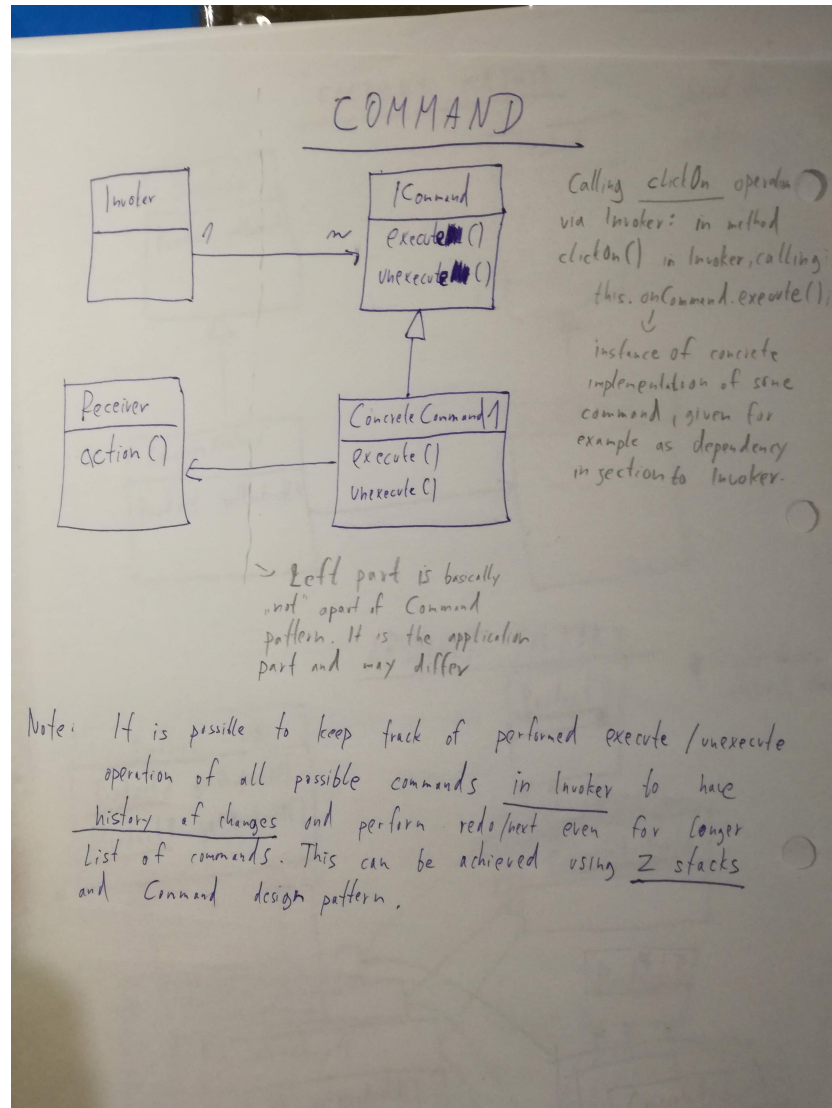 COMMAND
Invoker
1
n
ICommand
execute()
unexecute()
Calling clickOn operation
via Invoker: in method
clickOn() in Invoker, calling
this.onCommand.execute();
instance of concrete
implementation of some
command, given for
example as dependency
injection to Invoker.
Receiver
action()
ConcreteCommand1
execute()
unexecute()
Left part is basically
"not" apart of Command
pattern. It is the application
part and may differ
Note: It is possible to keep track of performed execute/unexecute
operation of all possible commands in Invoker to have
history of changes and perform redo/next even for longer
List of commands. This can be achieved using 2 stacks
and Command design pattern.